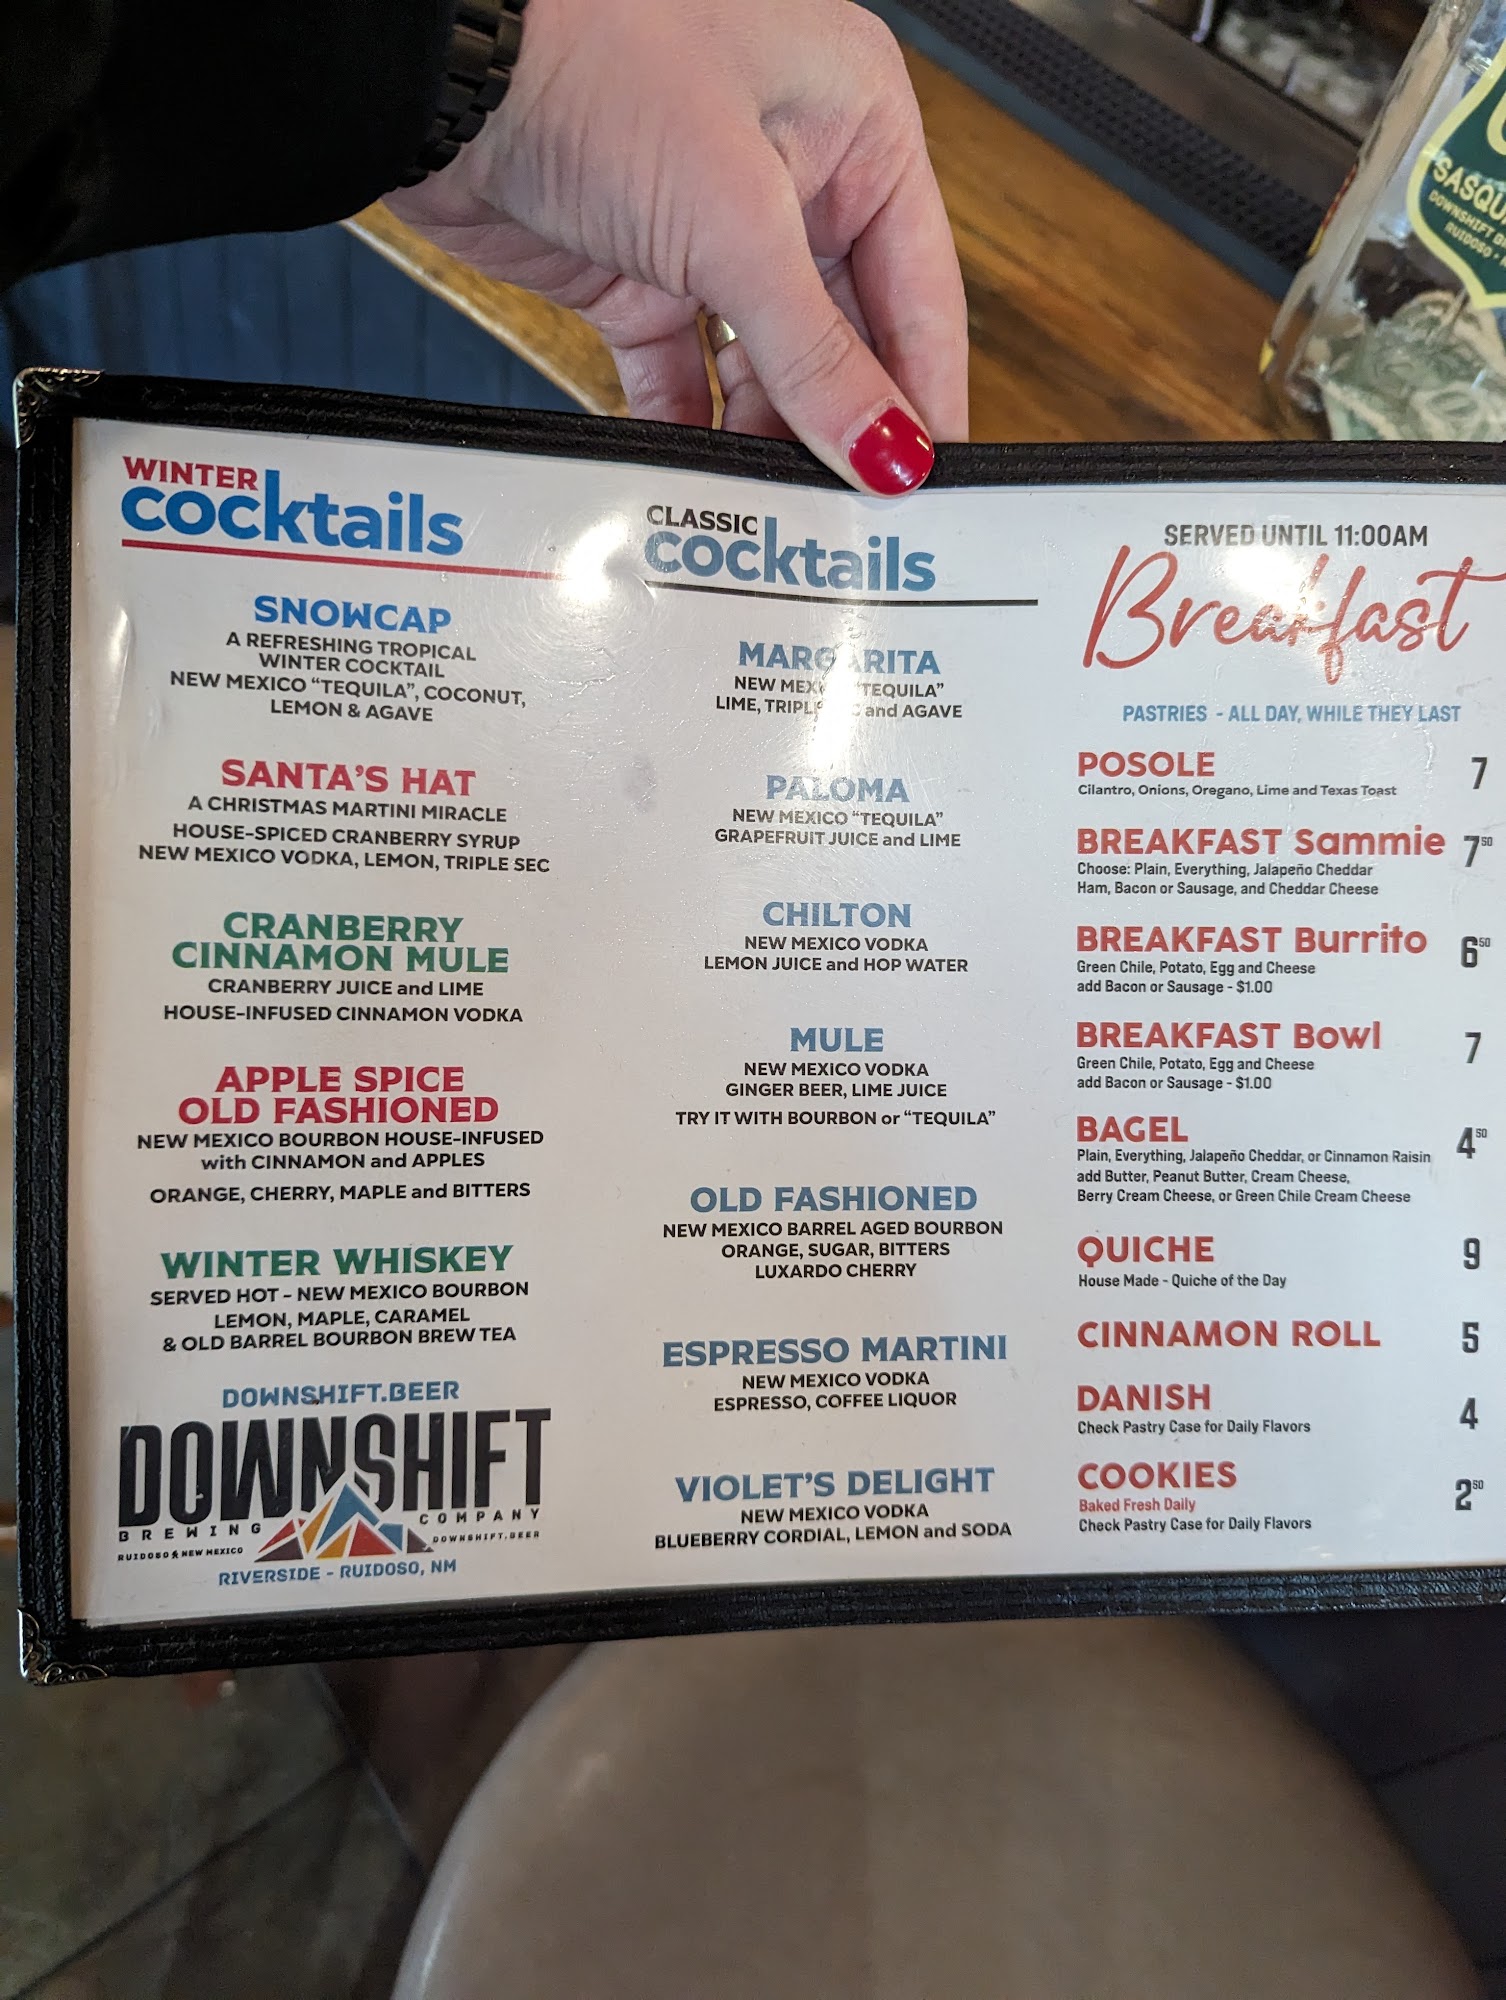 WINTER
cocktails
SNOWCAP
A REFRESHING TROPICAL
WINTER COCKTAIL
NEW MEXICO "TEQUILA", COCONUT,
LEMON & AGAVE
SANTA'S HAT
A CHRISTMAS MARTINI MIRACLE
HOUSE-SPICED CRANBERRY SYRUP
NEW MEXICO VODKA, LEMON, TRIPLE SEC
CRANBERRY
CINNAMON MULE
CRANBERRY JUICE and LIME
HOUSE-INFUSED CINNAMON VODKA
APPLE SPICE
OLD FASHIONED
NEW MEXICO BOURBON HOUSE-INFUSED
with CINNAMON and APPLES
ORANGE, CHERRY, MAPLE and BITTERS
WINTER WHISKEY
SERVED HOT - NEW MEXICO BOURBON
LEMON, MAPLE, CARAMEL
& OLD BARREL BOURBON BREW TEA
DOWNSHIFT.BEER
DOWNSHIFT
BREWING COMPANY
RUIDOSO NEW MEXICO DOWNSHIFT.BEER
RIVERSIDE - RUIDOSO, NM
CLASSIC
cocktails
MARGARITA
NEW MEXICO "TEQUILA"
LIME, TRIPLE SEC and AGAVE
PALOMA
NEW MEXICO "TEQUILA"
GRAPEFRUIT JUICE and LIME
CHILTON
NEW MEXICO VODKA
LEMON JUICE and HOP WATER
MULE
NEW MEXICO VODKA
GINGER BEER, LIME JUICE
TRY IT WITH BOURBON or "TEQUILA"
OLD FASHIONED
NEW MEXICO BARREL AGED BOURBON
ORANGE, SUGAR, BITTERS
LUXARDO CHERRY
ESPRESSO MARTINI
NEW MEXICO VODKA
ESPRESSO, COFFEE LIQUOR
VIOLET'S DELIGHT
NEW MEXICO VODKA
BLUEBERRY CORDIAL, LEMON and SODA
SERVED UNTIL 11:00AM
Breakfast
PASTRIES - ALL DAY, WHILE THEY LAST
POSOLE 7
Cilantro, Onions, Oregano, Lime and Texas Toast
BREAKFAST Sammie 7 50
Choose: Plain, Everything, Jalapeño Cheddar
Ham, Bacon or Sausage, and Cheddar Cheese
BREAKFAST Burrito 6 50
Green Chile, Potato, Egg and Cheese
add Bacon or Sausage - $1.00
BREAKFAST Bowl 7
Green Chile, Potato, Egg and Cheese
add Bacon or Sausage - $1.00
BAGEL 4 50
Plain, Everything, Jalapeño Cheddar, or Cinnamon Raisin
add Butter, Peanut Butter, Cream Cheese,
Berry Cream Cheese, or Green Chile Cream Cheese
QUICHE 9
House Made - Quiche of the Day
CINNAMON ROLL 5
DANISH 4
Check Pastry Case for Daily Flavors
COOKIES 2 50
Baked Fresh Daily
Check Pastry Case for Daily Flavors